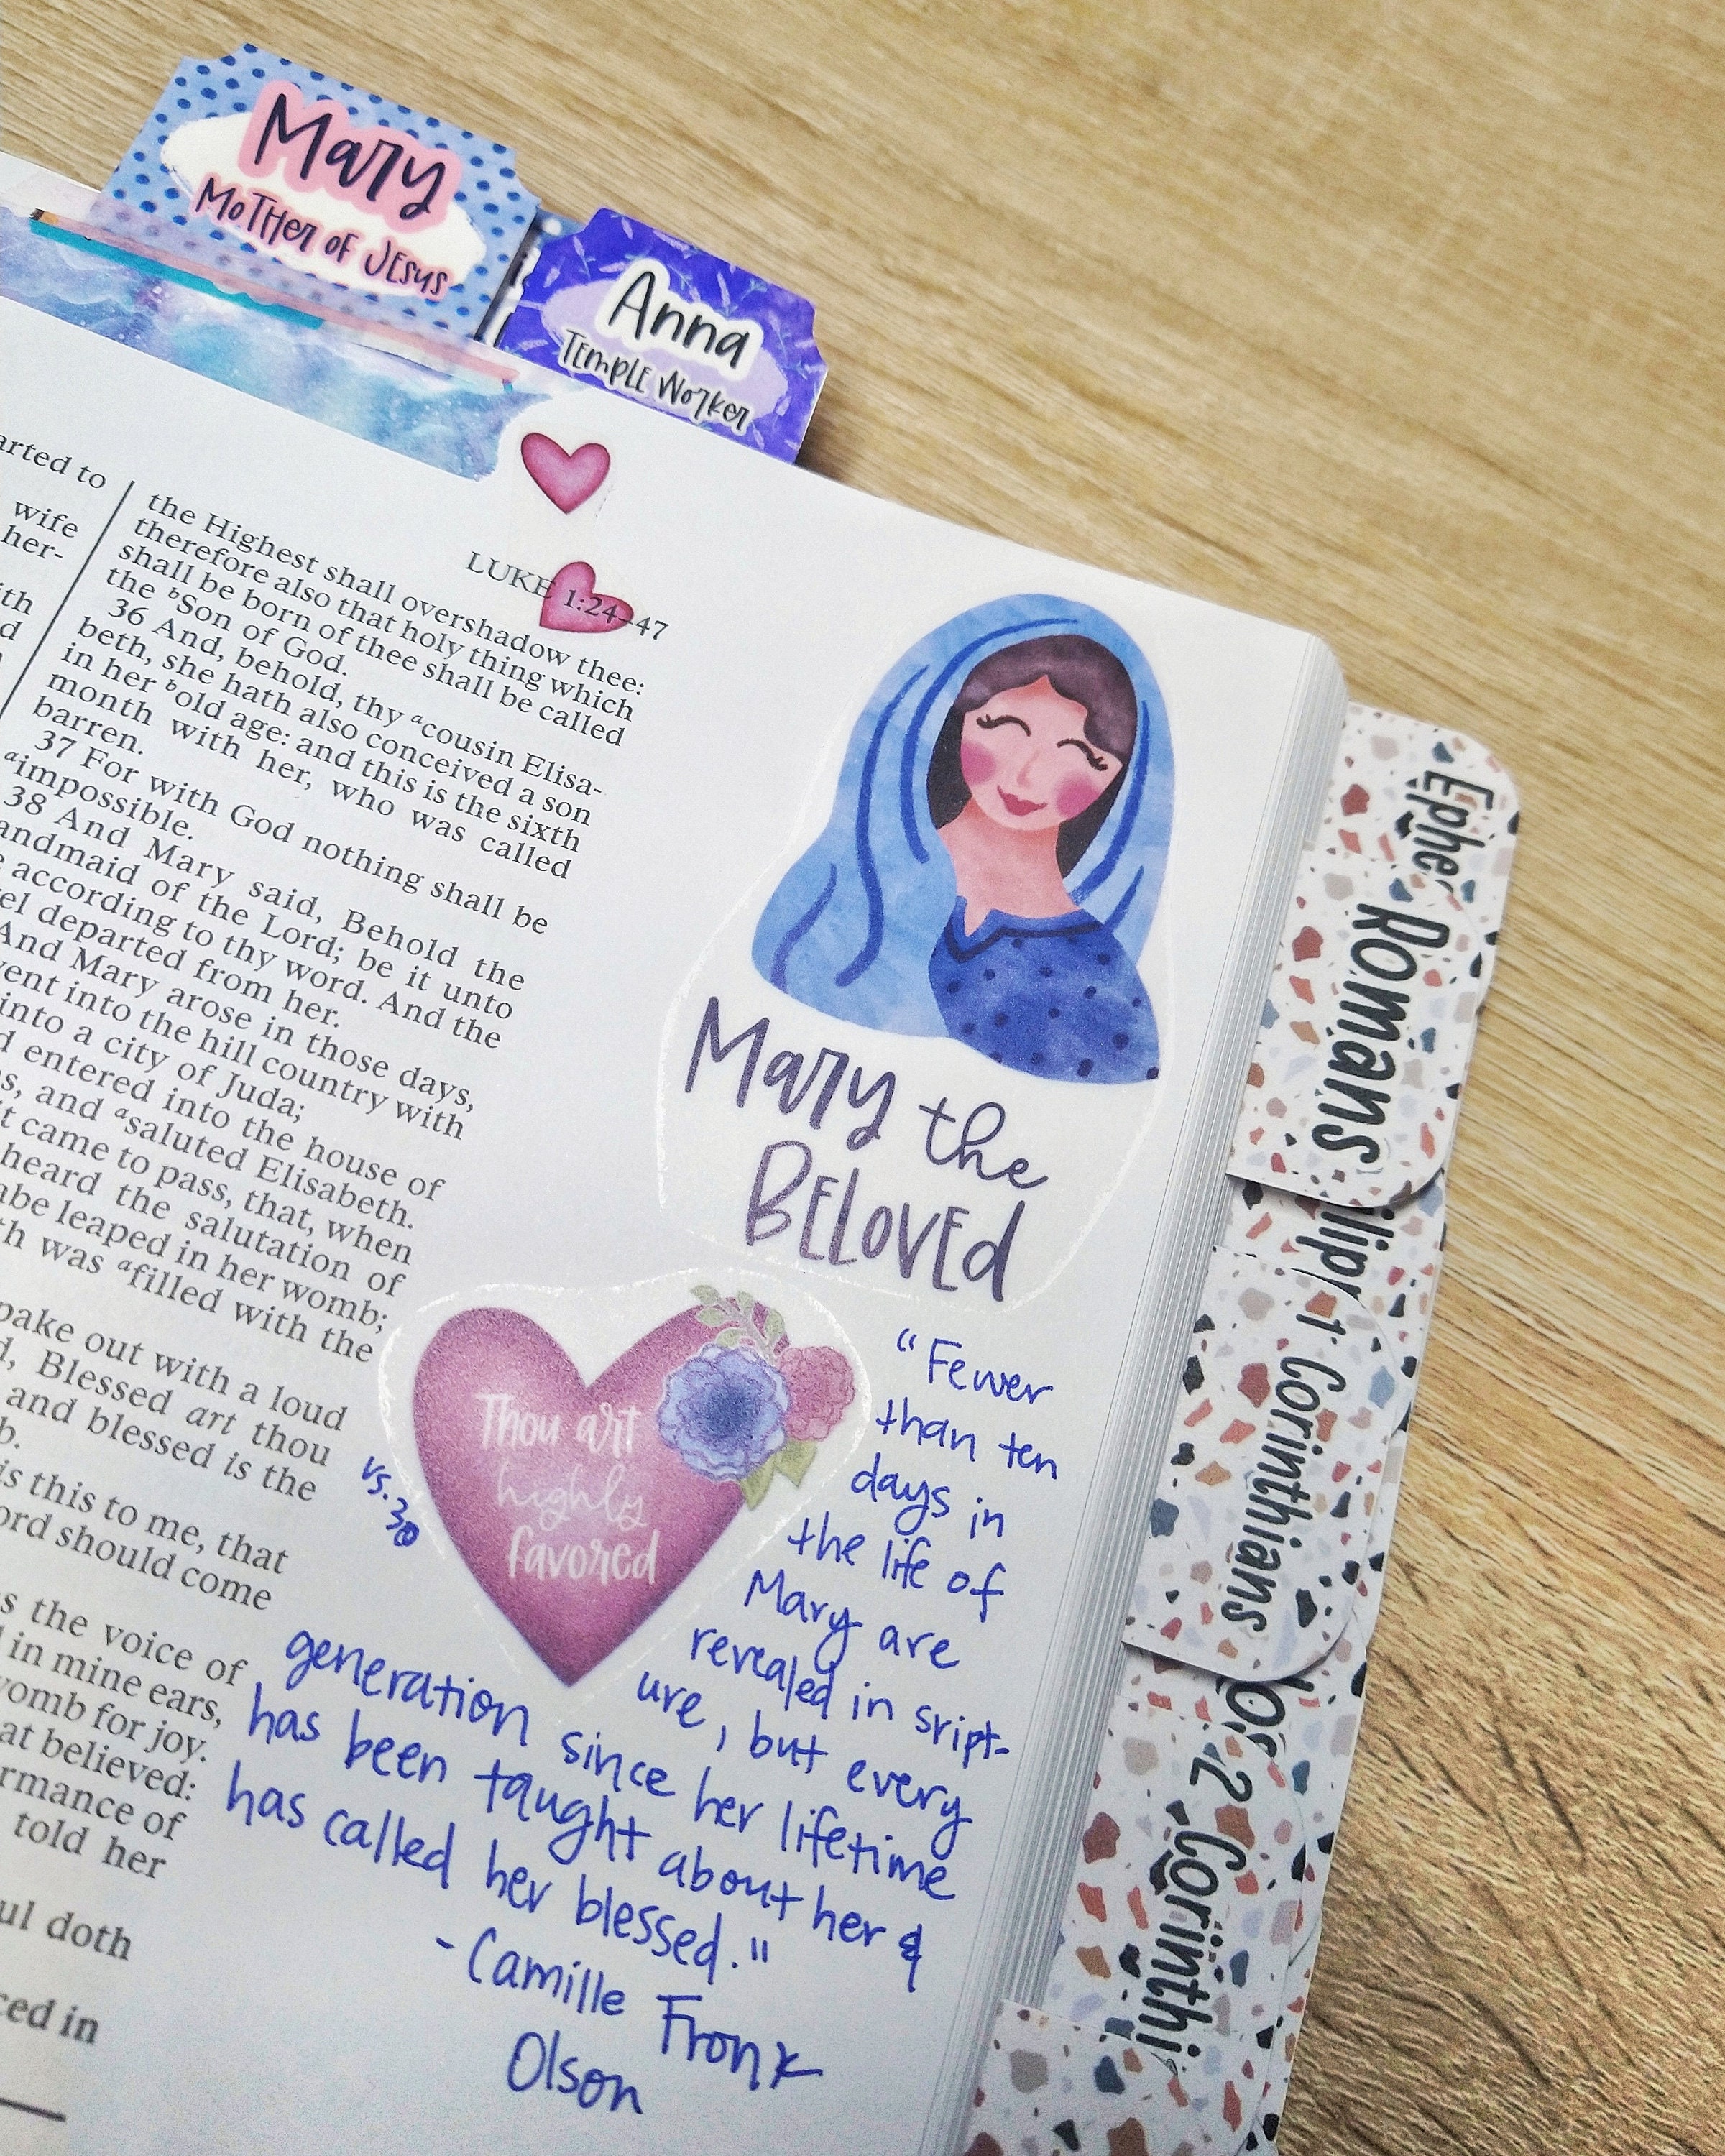 Mary
Mother of Jesus
Anna
Temple Worker
LUKE 1:24–47
arted to
wife
her-
ith
d
the Highest shall overshadow thee:
therefore also that holy thing which
shall be born of thee shall be called
the bSon of God.
36 And, behold, thy acousin Elisa-
beth, she hath also conceived a son
in her bold age: and this is the sixth
month with her, who was called
barren.
37 For with God nothing shall be
aimpossible.
38 And Mary said, Behold the
andmaid of the Lord; be it unto
e according to thy word. And the
el departed from her.
And Mary arose in those days,
vent into the hill country with
into a city of Juda;
d entered into the house of
s, and asaluted Elisabeth.
t came to pass, that, when
heard the salutation of
abe leaped in her womb;
th was afilled with the
pake out with a loud
d, Blessed art thou
and blessed is the
b.
is this to me, that
ord should come
s the voice of
in mine ears,
womb for joy.
at believed:
rmance of
told her
ul doth
ced in
Mary the
Beloved
Thou art
highly
favored
vs. 30
"Fewer
than ten
days in
the life of
Mary are
revealed in sript-
ure, but every
generation since her lifetime
has been taught about her &
has called her blessed."
- Camille Fronk
Olson
Ephe
Romans
ilip
1 Corinthians
os
2 Corinthi